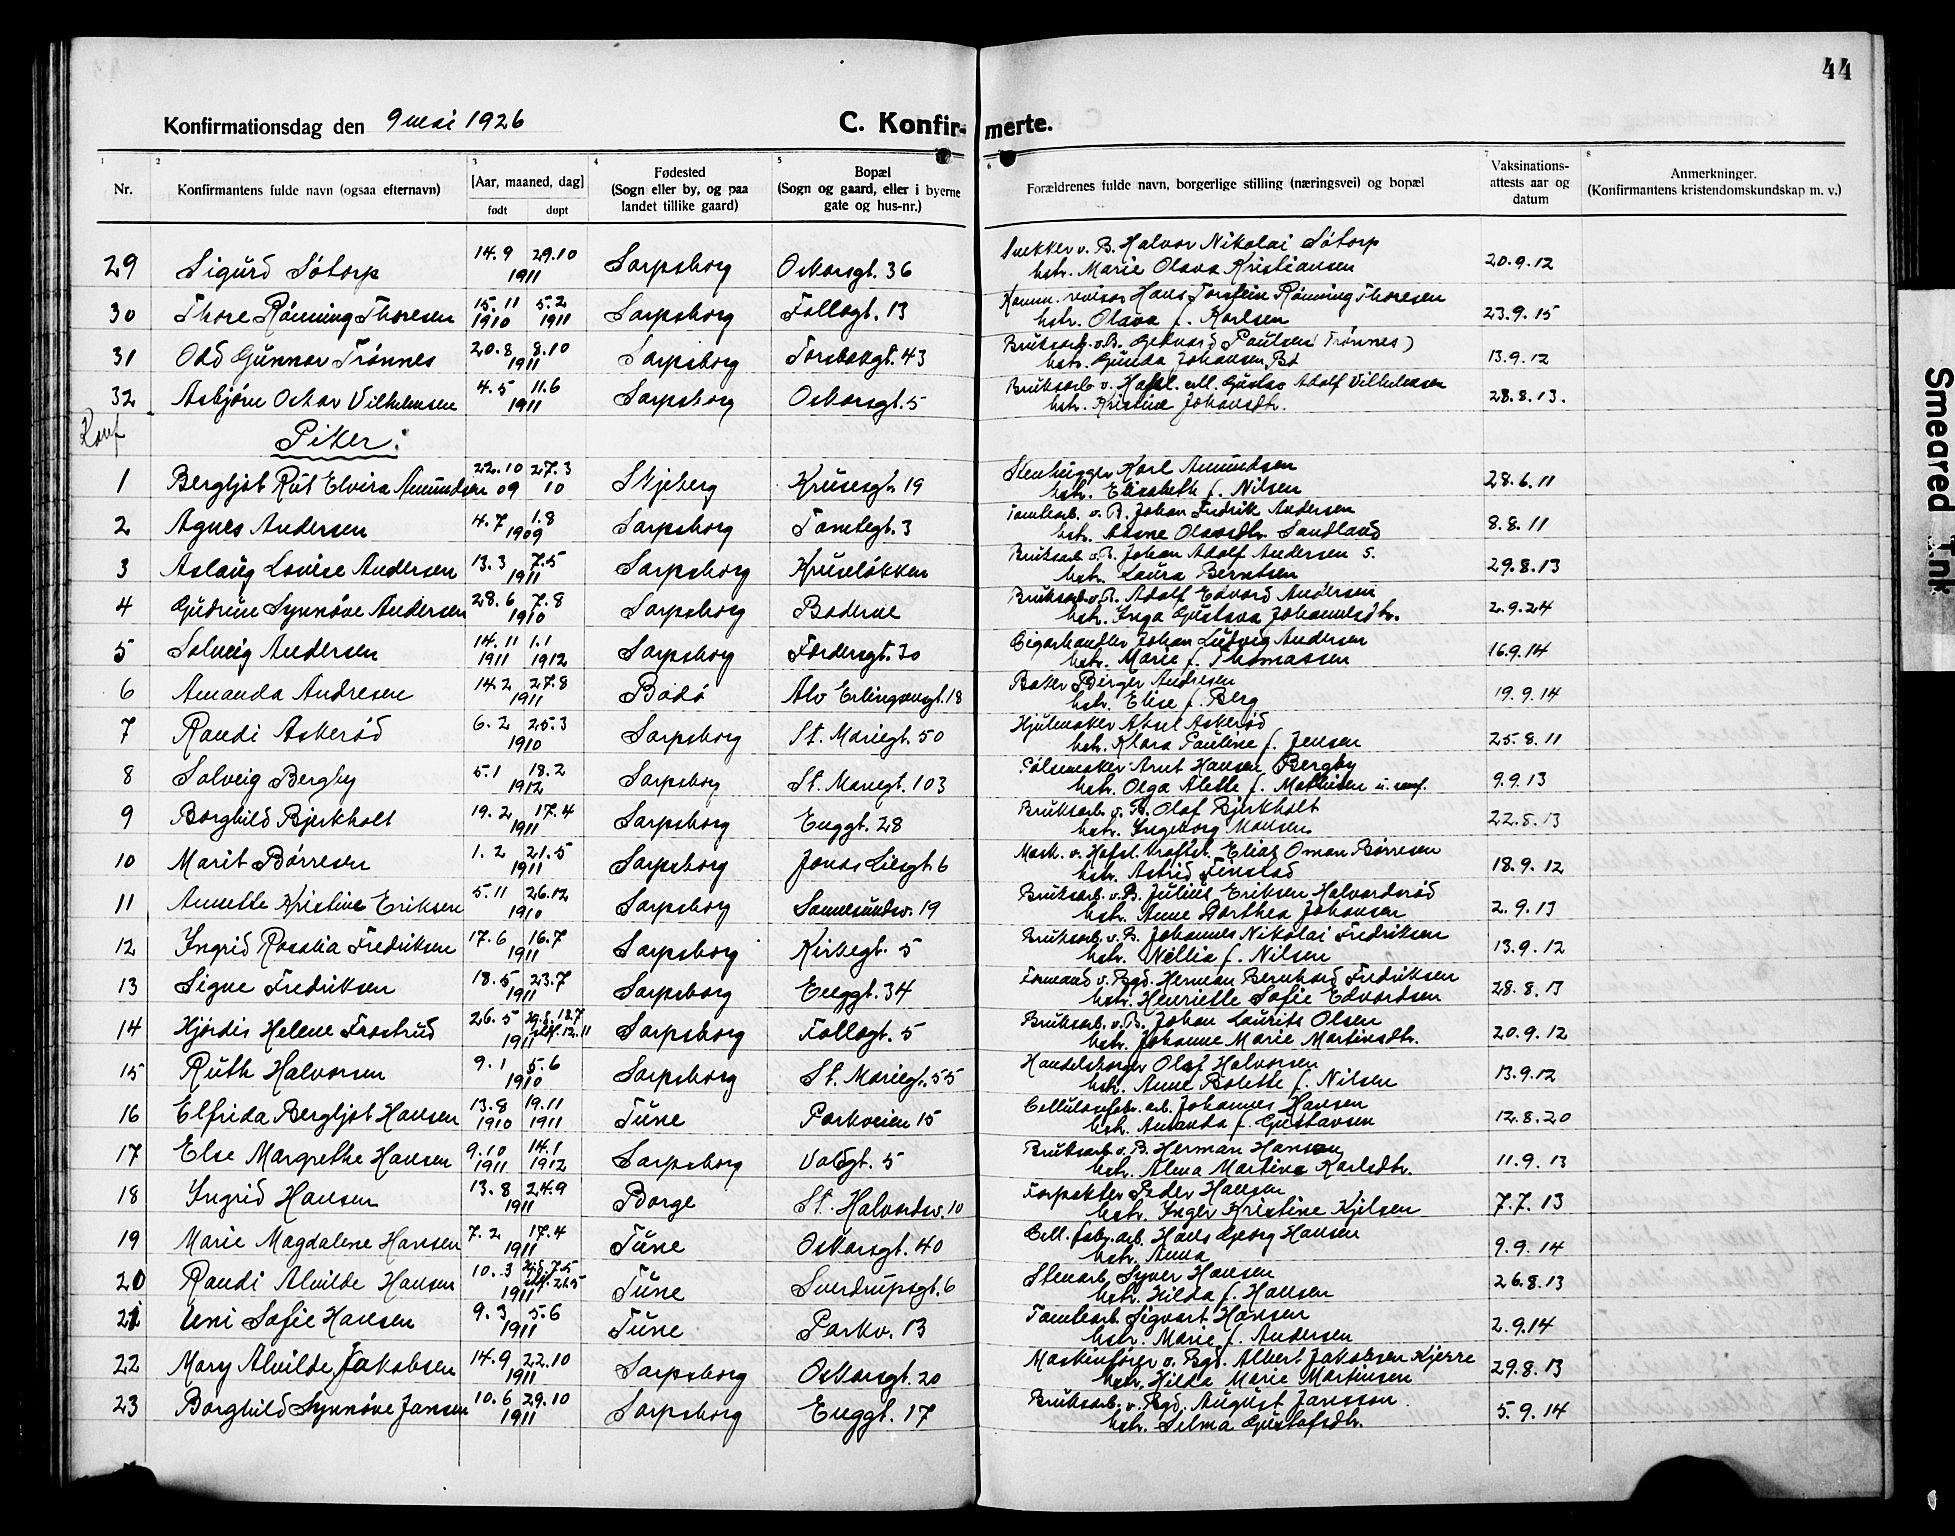 44
Konfirmationsdag den 9 mai 1926 C. Konfir- merte.
1 2 3 4 5 6 7 8
Nr. Konfirmantens fulde navn (ogsaa efternavn) [Aar, maaned, dag] født døpt Fødested (Sogn eller by, og paa landet tillike gaard) Bopæl (Sogn og gaard, eller i byerne gate og hus-nr.) Forældrenes fulde navn, borgerlige stilling (næringsvei) og bopæl Vaksinations-attests aar og datum Anmerkninger. (Konfirmantens kristendomskundskap m. v.)
29 Sigurd Søtorp 14.9 29.10 1911 Sarpsborg Oskarsgt. 36 Snekker v. B. Halvor Nikolai Søtorp
hstr. Marie Olava Kristiansen 20.9.12
30 Thore Rønning Thoresen 15.11 1910 5.2 1911 Sarpsborg Follogt. 13 Komm. revisor Hans Torstein Rønning Thoresen
hstr. Olava f. Karlsen 23.9.15
31 Odd Gunnar Trønnes 20.8 8.10 1911 Sarpsborg Torsbekgt. 43 Bruksarb. v. B. Gedvard Paulsen (Trønnes)
hstr. Gunda Johansen Bø 13.9.12
32 Asbjørn Oskar Vilhelmsen 4.5 11.6 1911 Sarpsborg Oskarsgt. 5 Bruksarb. v. Hafsl. Gustav Adolf Vilhelmsen
hstr. Kristine Johansdtr. 28.8.13.
Konf
Piker:
1 Bergljot Rut Elvira Amundsen 22.10 09 27.3 10 Skjeberg Krusesgt. 19 Stenhugger Karl Amundsen
hstr. Elisabeth f. Nilsen 28.6.11
2 Agnes Andersen 4.7 1.8 1909 Sarpsborg Tomtegt. 3 Tomtearb. v. B. Johan Fredrik Andersen
hstr. Anne Olavsdtr. Sandland 8.8.11
3 Aslaug Lovise Andersen 13.3 7.5 1911 Sarpsborg Kruseløkken Bruksarb. v. B. Johan Adolf Andersen s.
hstr. Laura Berntsen 29.8.13
4 Gudrun Synnøve Andersen 28.6 7.8 1910 Sarpsborg Baderne Bruksarb. v. B. Adolf Edvard Andersen
hstr. Inga Gustava Johannesdtr. 2.9.24
5 Solveig Andersen 14.11 1911 1.1 1912 Sarpsborg Færdersgt. 30 Cigarhandler Johan Ludvig Andersen
hstr. Marie f. Thomassen 16.9.14
6 Amanda Andresen 14.2 27.8 1911 Bodø Alv Erlingsønsgt. 18 Baker Birger Andresen
hstr. Elise f. Berg 19.9.14
7 Randi Askerød 6.2 25.3 1910 Sarpsborg St. Mariegt. 50 Hjulmaker Aksel Askerød
hstr. Klara Pauline f. Jensen 25.8.11
8 Solveig Bergby 5.1 18.2 1912 Sarpsborg St. Mariegt. 103 Pølsemaker Arnt Hansen Bergby
hstr. Olga Alette f. Mathisen 9.9.13
9 Borghild Bjerkholt 19.2 17.4 1911 Sarpsborg Enggt. 28 Bruksarb. v. B. Olaf Bjerkholt
hstr. Ingeborg Monsen 22.8.13
10 Marit Børresen 1.2 21.5 1911 Sarpsborg Jonas Liesgt. 6 Mask. v. Hafsl. kraftst. Elias Oman Børresen
hstr. Astrid Finstad 18.9.12
11 Annette Kristine Eriksen 5.11 26.12 1910 Sarpsborg Sannesundsv. 19 Bruksarb. v. B. Julius Eriksen Halvardsrød
hstr. Anne Dorthea Johansen 2.9.13
12 Ingrid Rosalia Fredriksen 17.6 16.7 1911 Sarpsborg Kirkegt. 5 Bruksarb. v. B. Johannes Nikolai Fredriksen
hstr. Nellia f. Nilsen 13.9.12
13 Signe Fredriksen 18.5 23.7 1911 Sarpsborg Enggt. 34 Formand v. Bgd. Herman Bernhard Fredriksen
hstr. Henriette Sofie Edvardsen 28.8.13
14 Hjørdis Helene Frostrud 26.5 hj.d. 18.7 stf. 12.11 1911 Sarpsborg Follogt. 5 Bruksarb. v. B. Johan Laurits Olsen
hstr. Johanne Marie Martinsdtr. 20.9.12
15 Ruth Halvorsen 9.1 5.6 1910 Sarpsborg St. Mariegt. 55 Handelsborger Olaf Halvorsen
hstr. Anne Bolette f. Nilsen 13.9.12
16 Elfrida Bergljot Hansen 13.8 1910 19.11 1911 Tune Parkveien 15 Cellulosefabr. arb. Johannes Hansen
hstr. Amanda f. Gustavsen 12.8.20
17 Else Margrethe Hansen 9.10 1911 14.1 1912 Sarpsborg Voldgt. 5 Bruksarb. v. B. Herman Hansen
hstr. Alma Martine Karlsdtr. 11.9.13
18 Ingrid Hansen 13.8 24.9 1911 Borge St. Halvardsv. 10 Forpakter Peder Hansen
hstr. Inger Kristine Kjelsen 7.7.13
19 Marie Magdalene Hansen 7.2 17.4 1911 Tune Oskarsgt. 40 Cell. fabr. arb. Hans Georg Hansen
hstr. Anna 9.9.14
20 Randi Alvilde Hansen 10.3 hjd. 7.5 stf. 21.5 1911 Tune Sverdrupsgt. 6 Stenarb. Syver Hansen
hstr. Hilda f. Hansen 26.8.13
21 Uni Sofie Hansen 9.3 5.6 1911 Tune Parkv. 13 Tomtearb. Sigvart Hansen
hstr. Marie f. Andersen 2.9.14
22 Mary Alvilde Jakobsen 14.9 22.10 1911 Sarpsborg Oskarsgt. 20 Maskinfører v. Bgd. Albert Jakobsen Kjerre
hstr. Hilda Marie Martinsen 29.8.13
23 Borghild Synnøve Jansen 10.6 29.10 1911 Sarpsborg Enggt. 17 Bruksarb. v. Bgd. August Jansson
hstr. Selma Gustafsdtr. 5.9.14
Smeared Ink.